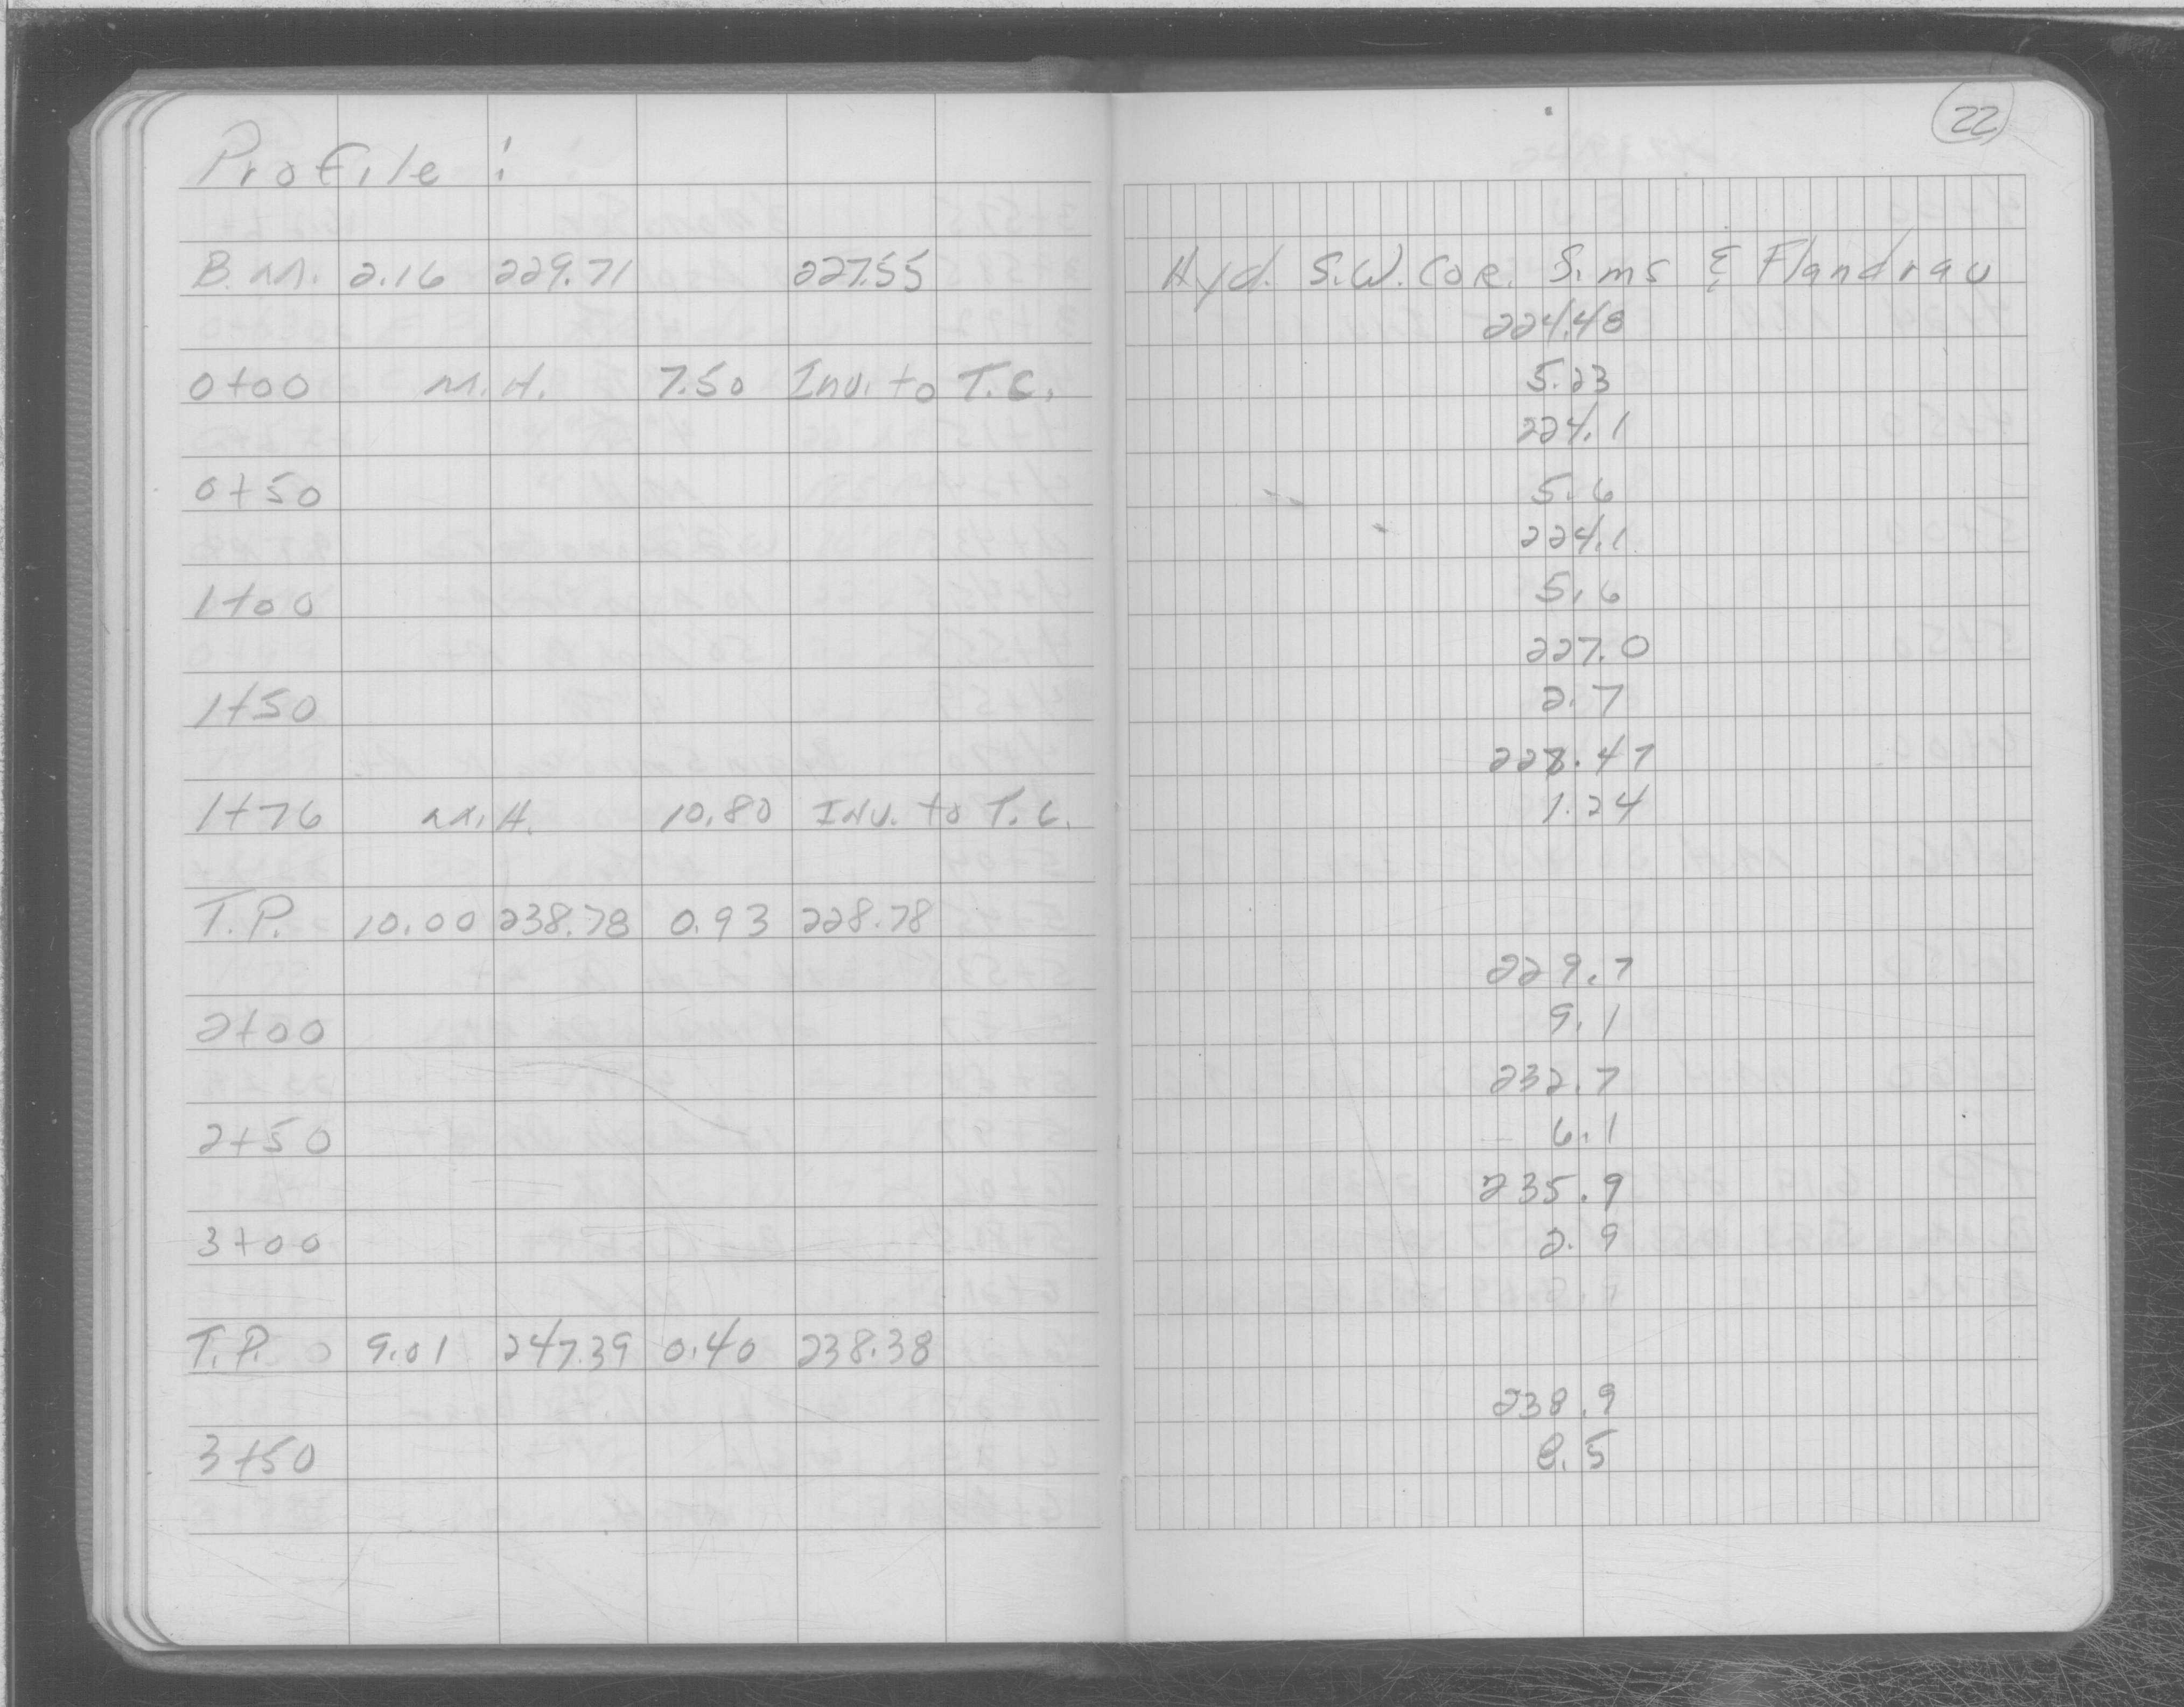 Profile :
B.M. 2.16 229.71 227.55
0+00 M.H. 7.50 Inv. to T.C.
0+50
1+00
1+50
1+76 M.H. 10.80 Inv. to T.C.
T.P. 10.00 238.78 0.93 228.78
2+00
2+50
3+00
T.P. 9.01 247.39 0.40 238.38
3+50
22
Hyd. S.W. Cor. Sims & Flandrau
224.48
5.23
224.1
5.6
224.1
5.6
227.0
2.7
228.47
1.24
229.7
9.1
232.7
6.1
235.9
2.9
238.9
8.5